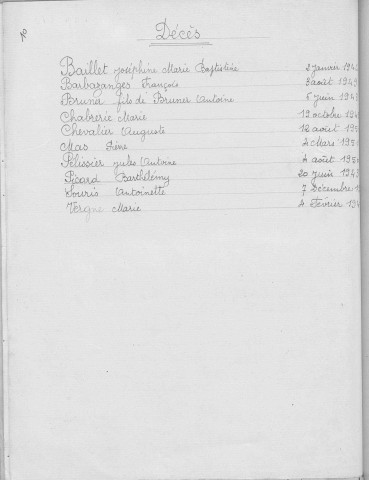 Décès
Baillet Joséphine Marie Baptistine 2 janvier 194
Barbazanges François 3 août 1949
Bruna fils de Bruna Antoine 6 juin 194
Chabrerie Marie 19 octobre 194
Chevalier Auguste 12 août 195
Mas Pierre 2 Mars 195
Pélissier Jules Antoine 4 août 195
Picard Barthélémy 20 juin 194
Souris Antoinette 7 Décembre 1
Vergne Marie 4 Février 194